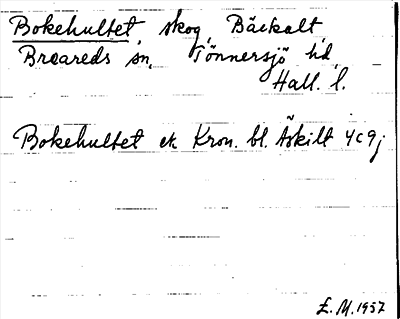 Bokehultet, skog, Bäckalt,
Breareds sn, Tönnersjö hd,
Hall. l.
Bokehultet ek. Kron. bl. Äskilt 4c9j
E.M. 1957